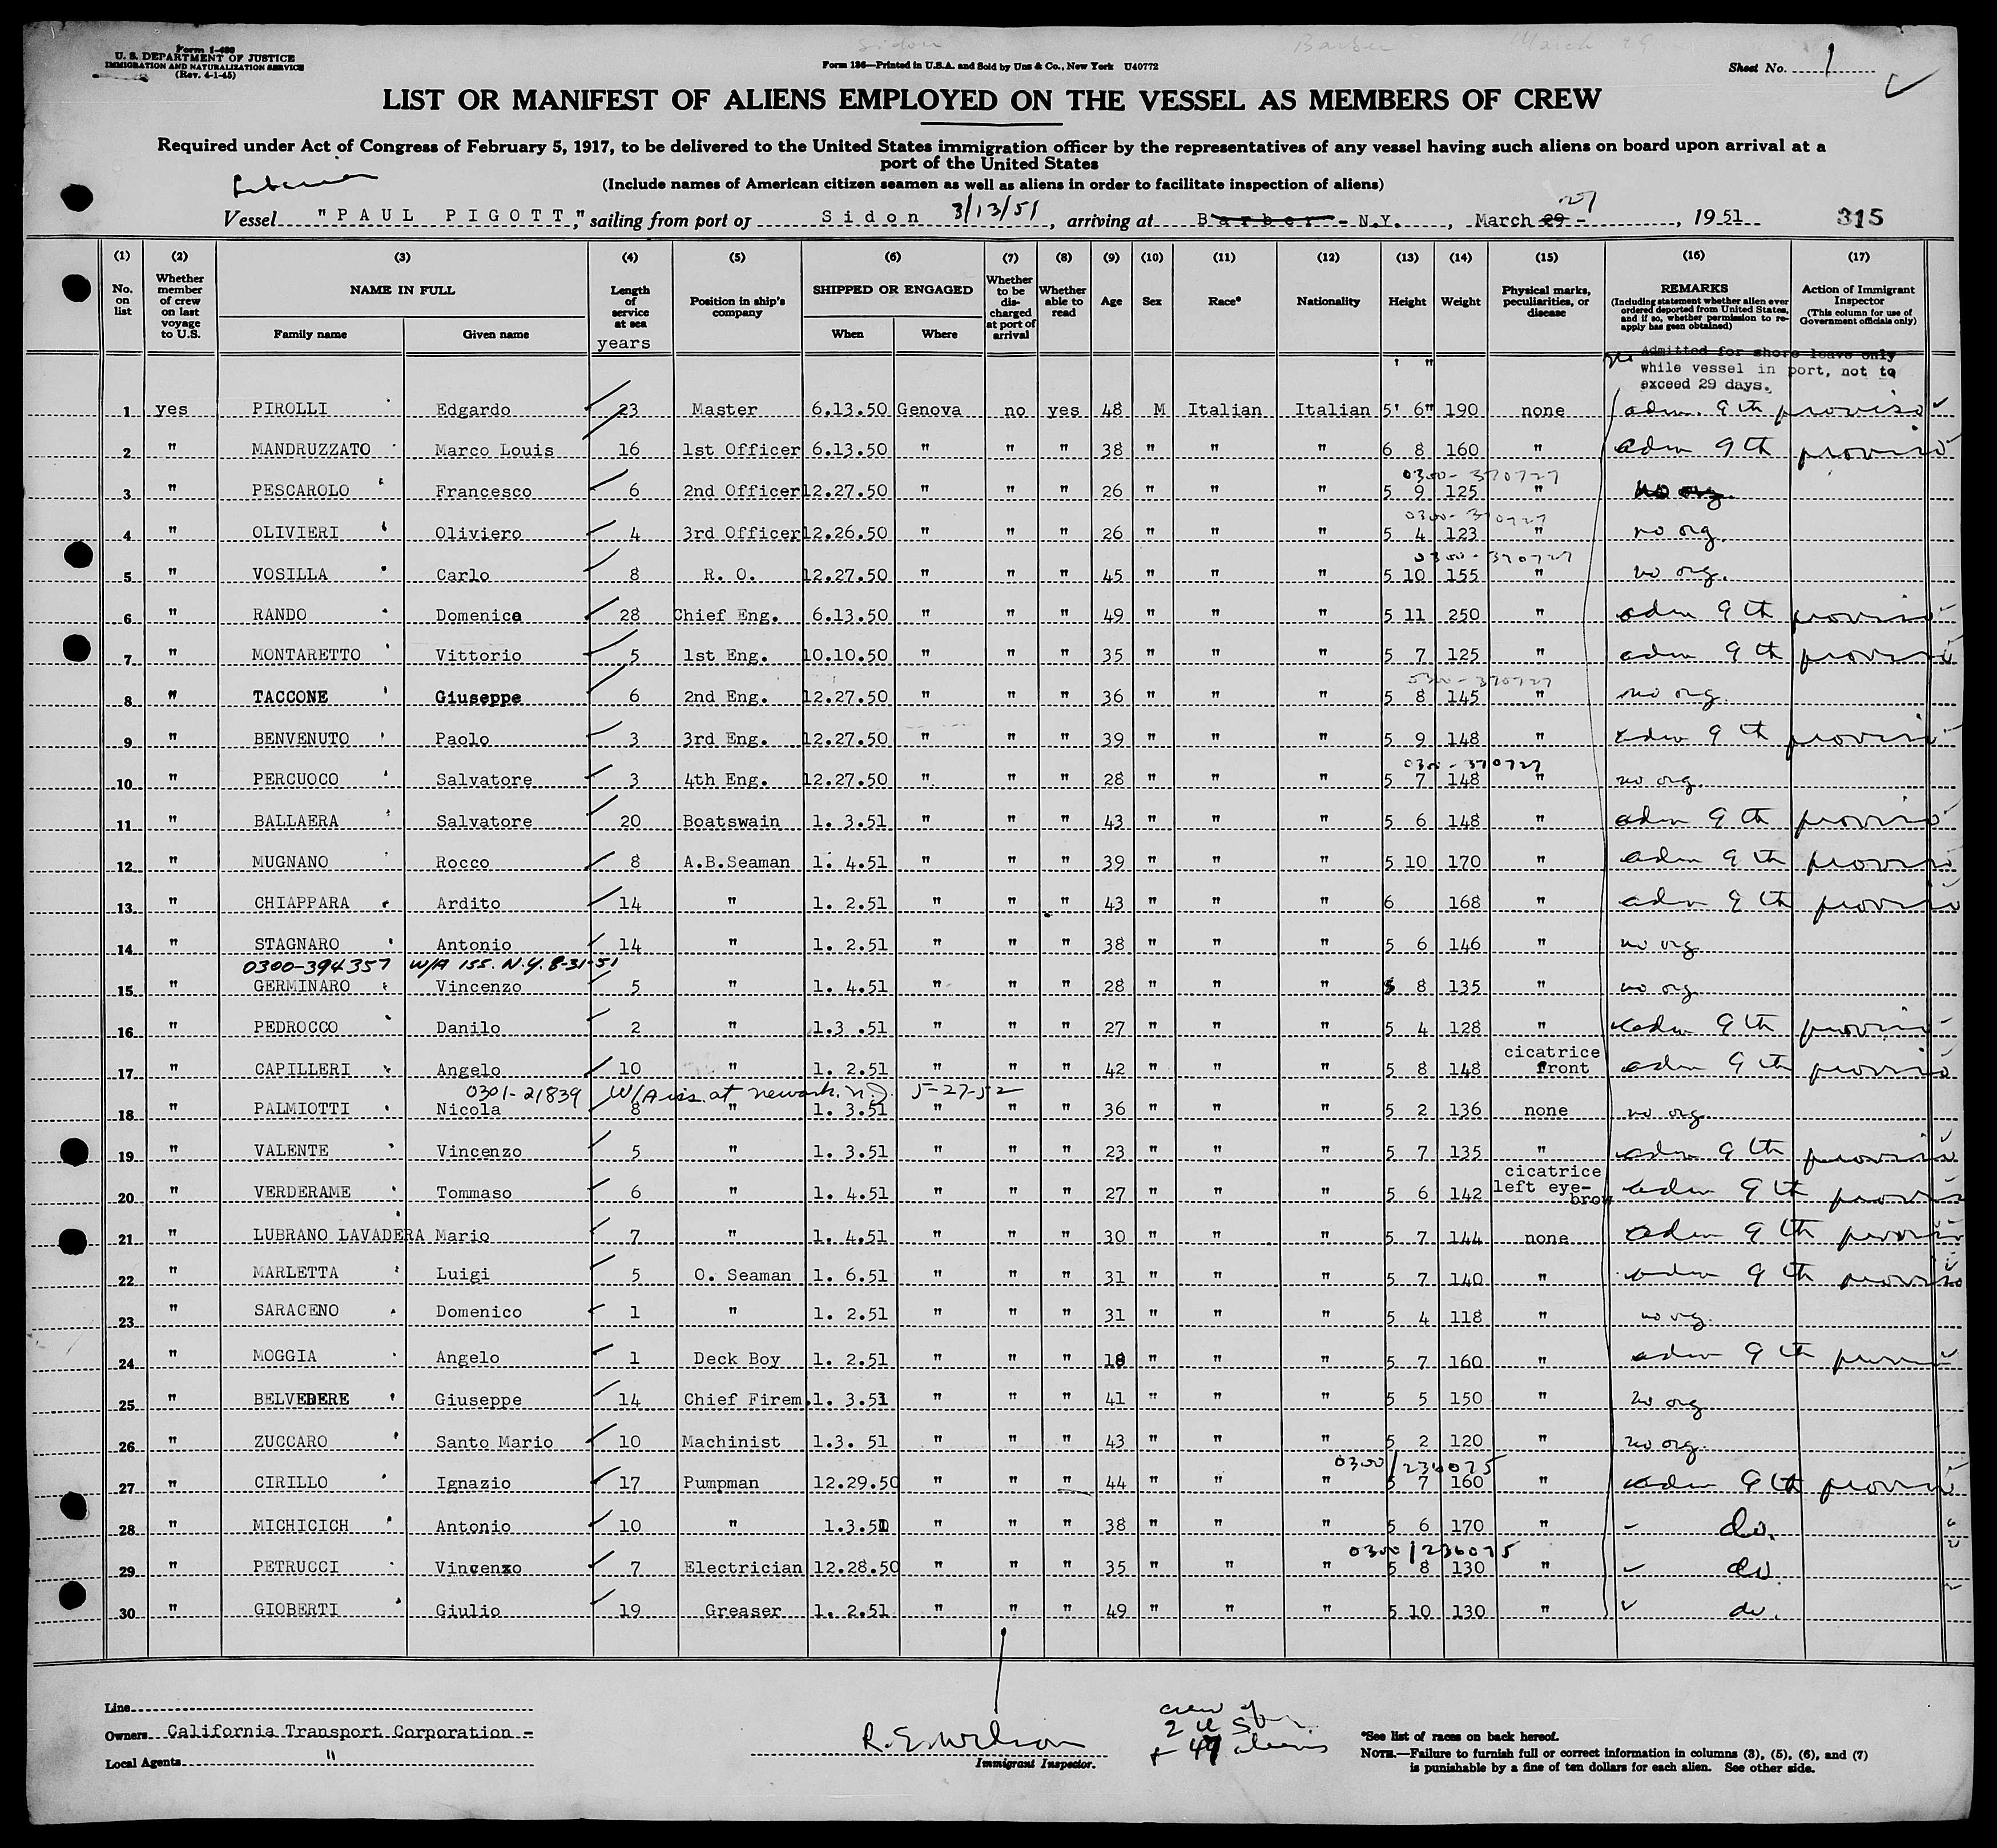 Sidon Barber March 29
Form I-480
U. S. DEPARTMENT OF JUSTICE
IMMIGRATION AND NATURALIZATION SERVICE
(Rev. 4-1-45)
Form 136—Printed in U.S.A. and Sold by Unz & Co., New York U40772
Sheet No. 1
LIST OR MANIFEST OF ALIENS EMPLOYED ON THE VESSEL AS MEMBERS OF CREW
Required under Act of Congress of February 5, 1917, to be delivered to the United States immigration officer by the representatives of any vessel having such aliens on board upon arrival at a
port of the United States
(Include names of American citizen seamen as well as aliens in order to facilitate inspection of aliens)
Liberian
Vessel "PAUL PIGOTT," sailing from port of Sidon 3/13/51, arriving at Barber - N.Y., March 29 - 27, 1951 315
(1) (2) (3) (4) (5) (6) (7) (8) (9) (10) (11) (12) (13) (14) (15) (16) (17)
No. on list
Whether member of crew on last voyage to U.S.
NAME IN FULL
Family name
Given name
Length of service at sea
years
Position in ship's company
SHIPPED OR ENGAGED
When
Where
Whether to be discharged at port of arrival
Whether able to read
Age
Sex
Race*
Nationality
Height
Weight
Physical marks, peculiarities, or disease
REMARKS
(Including statement whether alien ever ordered deported from United States, and if so, whether permission to reapply has been obtained)
Action of Immigrant Inspector
(This column for use of Government officials only)
Admitted for shore leave only
while vessel in port, not to
exceed 29 days.
1 yes PIROLLI Edgardo 23 Master 6.13.50 Genova no yes 48 M Italian Italian 5' 6" 190 none adm. 9th proviso
2 " MANDRUZZATO Marco Louis 16 1st Officer 6.13.50 " " " 38 " " " 6 8 160 " adm 9th proviso
0300-370727
3 " PESCAROLO Francesco 6 2nd Officer 12.27.50 " " " 26 " " " 5 9 125 " no org.
0300-370727
4 " OLIVIERI Oliviero 4 3rd Officer 12.26.50 " " " 26 " " " 5 4 123 " no org.
0300-370727
5 " VOSILLA Carlo 8 R. O. 12.27.50 " " " 45 " " " 5 10 155 " no org.
6 " RANDO Domenico 28 Chief Eng. 6.13.50 " " " 49 " " " 5 11 250 " adm 9th proviso
7 " MONTARETTO Vittorio 5 1st Eng. 10.10.50 " " " 35 " " " 5 7 125 " adm 9th proviso
0300-370727
8 " TACCONE Giuseppe 6 2nd Eng. 12.27.50 " " " 36 " " " 5 8 145 " no org.
9 " BENVENUTO Paolo 3 3rd Eng. 12.27.50 " " " 39 " " " 5 9 148 " adm 9th proviso
0300-370727
10 " PERCUOCO Salvatore 3 4th Eng. 12.27.50 " " " 28 " " " 5 7 148 " no org.
11 " BALLAERA Salvatore 20 Boatswain 1. 3.51 " " " 43 " " " 5 6 148 " adm 9th proviso
12 " MUGNANO Rocco 8 A.B.Seaman 1. 4.51 " " " 39 " " " 5 10 170 " adm 9th proviso
13 " CHIAPPARA Ardito 14 " 1. 2.51 " " " 43 " " " 6 168 " adm 9th proviso
14 " STAGNARO Antonio 14 " 1. 2.51 " " " 38 " " " 5 6 146 " no org
0300-394357 W/A iss. N.Y. 8-31-51
15 " GERMINARO Vincenzo 5 " 1. 4.51 " " " 28 " " " 5 8 135 " no org
16 " PEDROCCO Danilo 2 " 1.3 .51 " " " 27 " " " 5 4 128 " adm 9th proviso
17 " CAPILLERI Angelo 10 " 1. 2.51 " " " 42 " " " 5 8 148 cicatrice front adm 9th proviso
0301-21839 W/A iss. at newark, N.J. 5-27-52
18 " PALMIOTTI Nicola 8 " 1. 3.51 " " " 36 " " " 5 2 136 none no org.
19 " VALENTE Vincenzo 5 " 1. 3.51 " " " 23 " " " 5 7 135 " adm 9th proviso
20 " VERDERAME Tommaso 6 " 1. 4.51 " " " 27 " " " 5 6 142 cicatrice left eye-brow adm 9th proviso
21 " LUBRANO LAVADERA Mario 7 " 1. 4.51 " " " 30 " " " 5 7 144 none adm 9th proviso
22 " MARLETTA Luigi 5 O. Seaman 1. 6.51 " " " 31 " " " 5 7 140 " adm 9th proviso
23 " SARACENO Domenico 1 " 1. 2.51 " " " 31 " " " 5 4 118 " no org.
24 " MOGGIA Angelo 1 Deck Boy 1. 2.51 " " " 18 " " " 5 7 160 " adm 9th proviso
25 " BELVEDERE Giuseppe 14 Chief Firem. 1. 3.51 " " " 41 " " " 5 5 150 " no org
26 " ZUCCARO Santo Mario 10 Machinist 1.3. 51 " " " 43 " " " 5 2 120 " no org.
0300/236075
27 " CIRILLO Ignazio 17 Pumpman 12.29.50 " " " 44 " " " 5 7 160 " adm 9th proviso
28 " MICHICICH Antonio 10 " 1.3.51 " " " 38 " " " 5 6 170 " do.
0300/236075
29 " PETRUCCI Vincenzo 7 Electrician 12.28.50 " " " 35 " " " 5 8 130 " do
30 " GIOBERTI Giulio 19 Greaser 1. 2.51 " " " 49 " " " 5 10 130 " do.
Line
Owners California Transport Corporation -
Local Agents "
R. E. Wilson
Immigrant Inspector.
crew of
2 U.S.
+ 49 aliens
*See list of races on back hereof.
NOTE.—Failure to furnish full or correct information in columns (3), (5), (6), and (7)
is punishable by a fine of ten dollars for each alien. See other side.